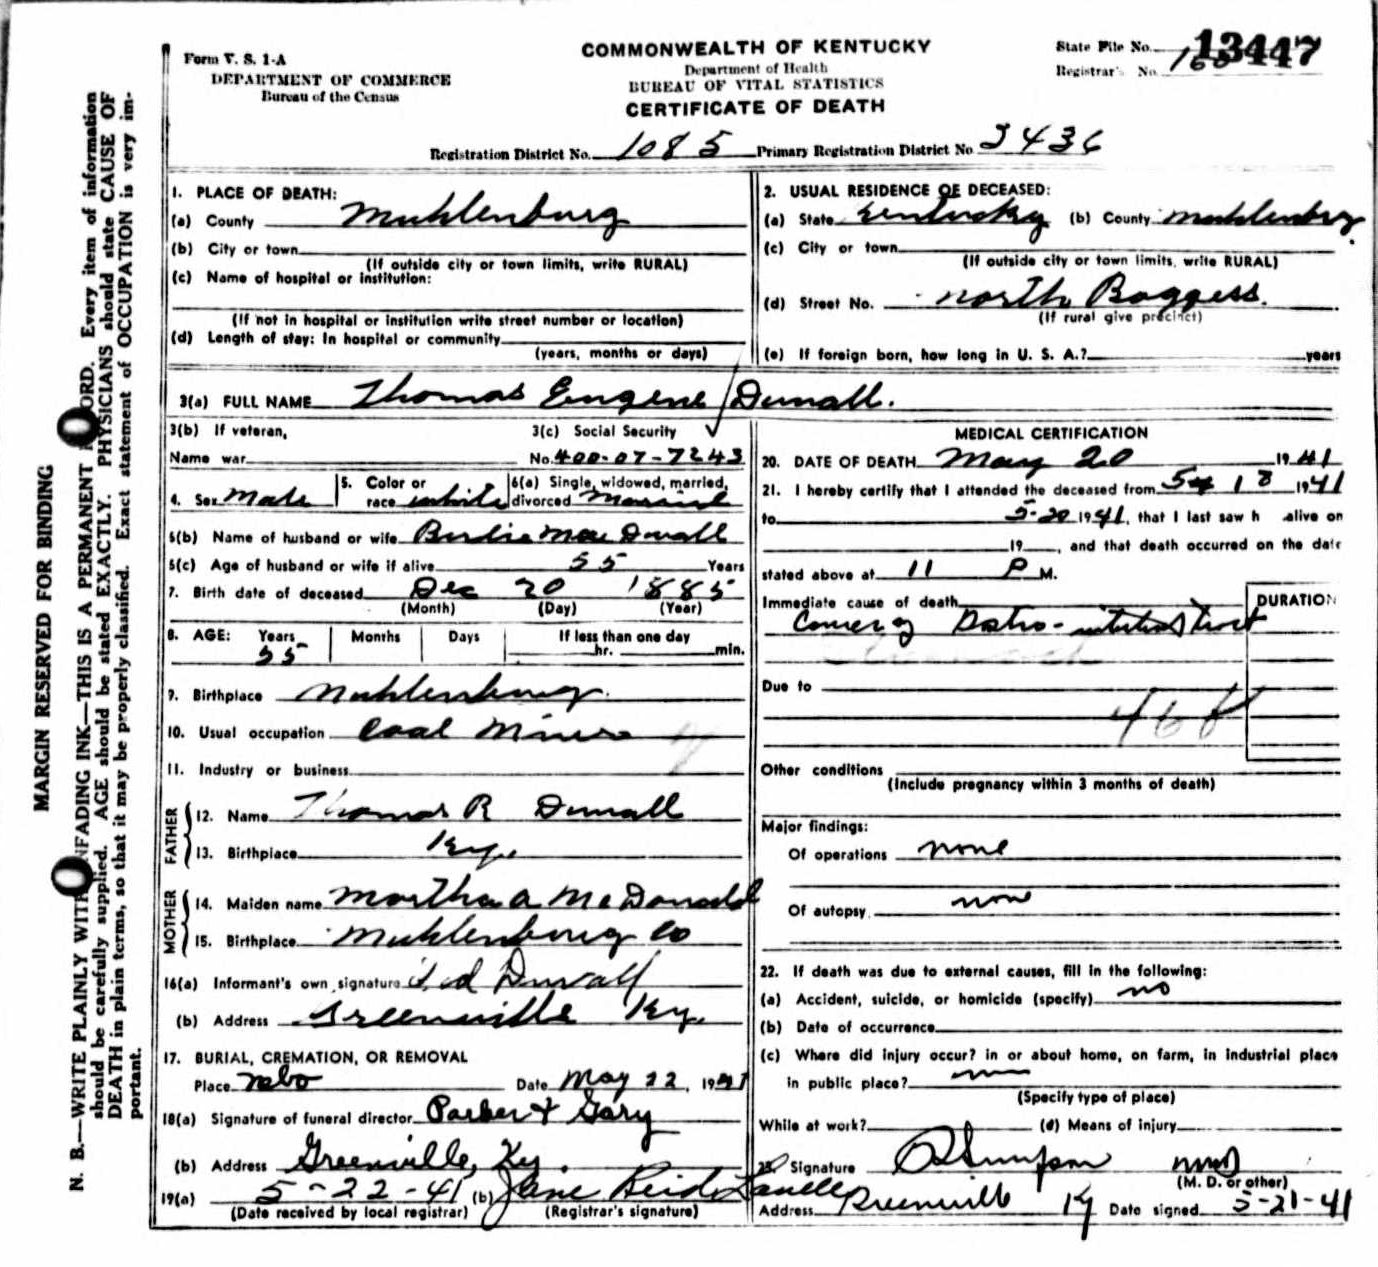 Form V. S. 1-A
DEPARTMENT OF COMMERCE
Bureau of the Census
COMMONWEALTH OF KENTUCKY
Department of Health
BUREAU OF VITAL STATISTICS
CERTIFICATE OF DEATH
State File No. 13447
Registrar's No.
Registration District No. 1085 Primary Registration District No. 3436
MARGIN RESERVED FOR BINDING
N. B.—WRITE PLAINLY WITH UNFADING INK—THIS IS A PERMANENT RECORD. Every item of information
should be carefully supplied. AGE should be stated EXACTLY. PHYSICIANS should state CAUSE OF
DEATH in plain terms, so that it may be properly classified. Exact statement of OCCUPATION is very im-
portant.
1. PLACE OF DEATH:
(a) County Muhlenburg
(b) City or town
(If outside city or town limits, write RURAL)
(c) Name of hospital or institution:
(If not in hospital or institution write street number or location)
(d) Length of stay: In hospital or community
(years, months or days)
2. USUAL RESIDENCE OF DECEASED:
(a) State Kentucky (b) County Muhlenburg
(c) City or town
(If outside city or town limits, write RURAL)
(d) Street No. North Boggess.
(If rural give precinct)
(e) If foreign born, how long in U. S. A.? years
3(a) FULL NAME Thomas Eugene Duvall.
3(b) If veteran,
Name war
3(c) Social Security
No. 400-07-7243
4. Sex Male
5. Color or
race white
6(a) Single, widowed, married,
divorced Married
6(b) Name of husband or wife Birdie Mae Duvall
6(c) Age of husband or wife if alive 55 Years
7. Birth date of deceased Dec 20 1885
(Month) (Day) (Year)
8. AGE: Years Months Days If less than one day
55 hr. min.
9. Birthplace Muhlenburg.
10. Usual occupation Coal Miner
11. Industry or business
FATHER
12. Name Thomas R Duvall
13. Birthplace Ky.
MOTHER
14. Maiden name Martha A McDonald
15. Birthplace Muhlenburg Co
16(a) Informant's own signature Ted Duvall
(b) Address Greenville Ky.
17. BURIAL, CREMATION, OR REMOVAL
Place Nebo Date May 22, 1941
18(a) Signature of funeral director Parker & Gary
(b) Address Greenville, Ky.
19(a) 5-22-41 (b) Jane Reid
(Date received by local registrar) (Registrar's signature)
MEDICAL CERTIFICATION
20. DATE OF DEATH May 20 1941
21. I hereby certify that I attended the deceased from 18 1941
to 5-20 1941, that I last saw h alive on
19 , and that death occurred on the date
stated above at 11 P M.
Immediate cause of death DURATION
Cancer of Gastro-intestinal tract
Due to
46
Other conditions
(Include pregnancy within 3 months of death)
Major findings:
Of operations none
Of autopsy none
22. If death was due to external causes, fill in the following:
(a) Accident, suicide, or homicide (specify) no
(b) Date of occurrence
(c) Where did injury occur? in or about home, on farm, in industrial place
in public place?
(Specify type of place)
While at work? (d) Means of injury
23. Signature Simpson
(M. D. or other)
Address Greenville Ky Date signed 5-21-41